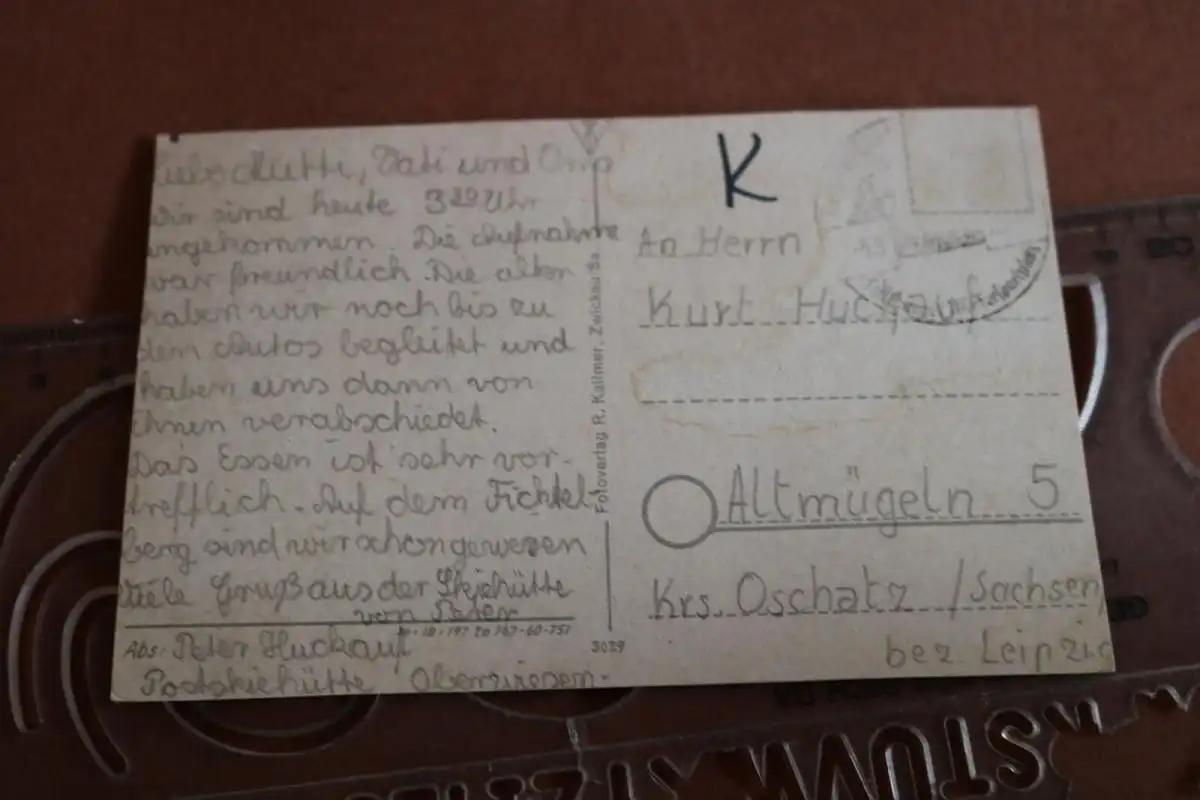 Liebe Mutti, Vati und Oma
wir sind heute 3²⁰ Uhr
angekommen. Die Aufnahme
war freundlich. Die alten
haben wir noch bis zu
dem Autos begleitet und
haben uns dann von
ihnen verabschiedet.
Das Essen ist sehr vor-
trefflich. Auf dem Fichtel-
berg sind wir schon gewesen
Viele Gruß aus der Skiehütte
von Peter
Abs: Peter Huckauf
Postskiehütte Oberwiesen-
Fotoverlag R. Kallmer, Zwickau Sa.
3029
K
An Herrn
Kurt Huckauf
Altmügeln 5
Krs. Oschatz / Sachsen
bez Leipzig